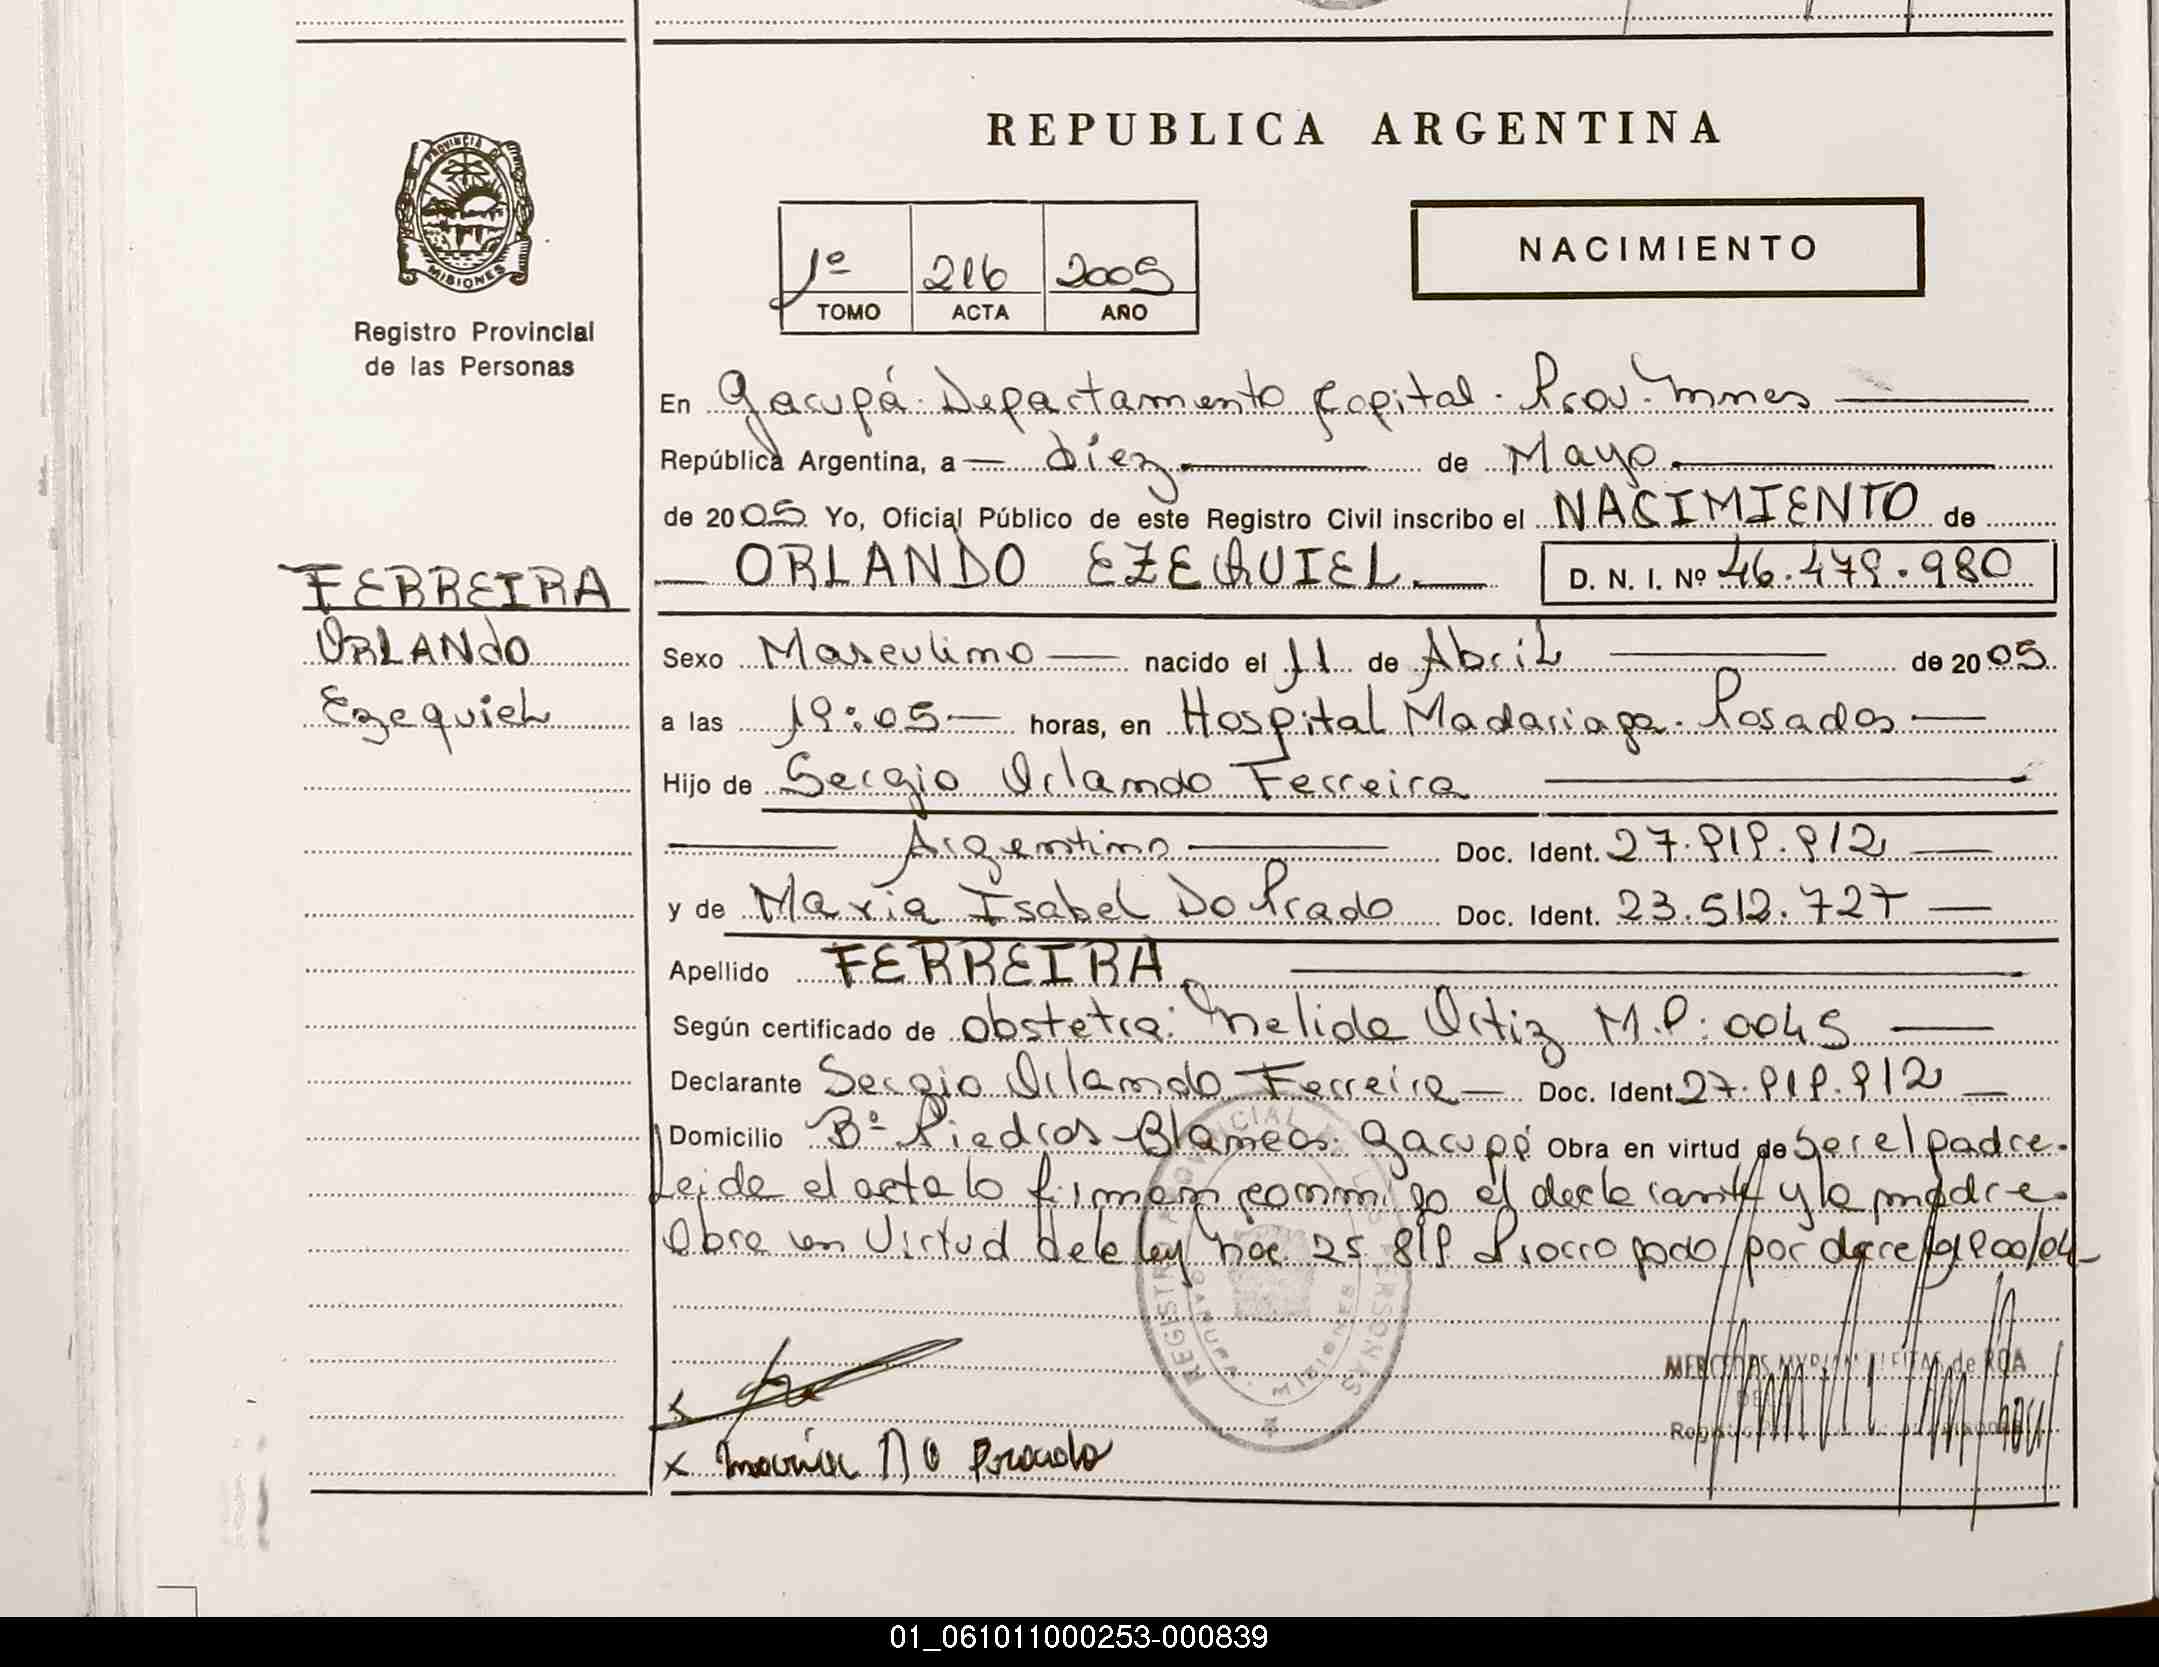 REPUBLICA ARGENTINA
PROVINCIA DE
MISIONES
Registro Provincial
de las Personas
1º 216 2005
TOMO ACTA AÑO
NACIMIENTO
En Garupá. Departamento Capital. Prov. Mnes
República Argentina, a diez de Mayo
de 2005 Yo, Oficial Público de este Registro Civil inscribo el NACIMIENTO de
ORLANDO EZEQUIEL. D. N. I. Nº 46.479.980
FERREIRA
ORLANdO
Ezequiel
Sexo Masculino nacido el 11 de Abril de 2005
a las 19:05 horas, en Hospital Madariaga. Posadas
Hijo de Sergio Orlando Ferreira
Argentino Doc. Ident. 27.919.912
y de Maria Isabel Do Prado Doc. Ident. 23.512.727
Apellido FERREIRA
Según certificado de obstetra: Nelida Ortiz M.P: 0045
Declarante Sergio Orlando Ferreira Doc. Ident. 27.919.912
Domicilio Bº Piedras Blancas. Garupá Obra en virtud de Ser el padre.
Leida el acta lo firman conmigo el declarante y la madre.
Obra en Virtud de la ley nac. 25 819 Prorrogado por decre
REGISTRO PROVINCIAL DE LAS PERSONAS
MISIONES
MERCEDES de ROA
x
x Maria DO Prado
01_061011000253-000839